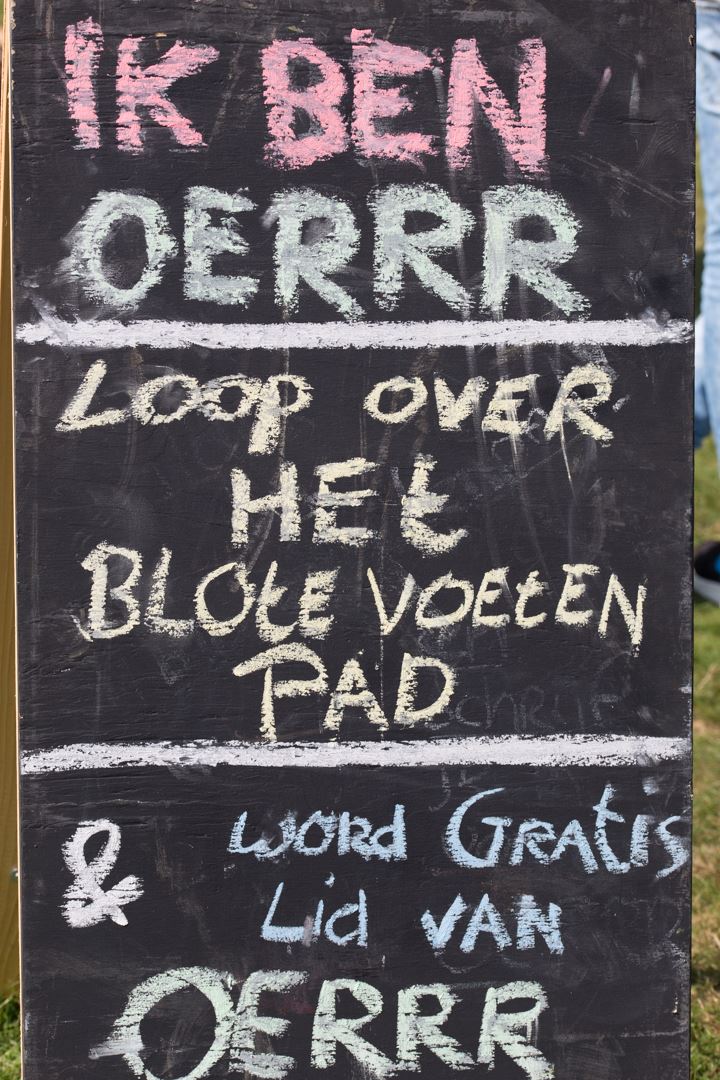 IK BEN
OERRR
LOOP OVER
HEt
BLOtE VOEtEN
PAD
& WORd GRAtis
Lid VAN
OERRR